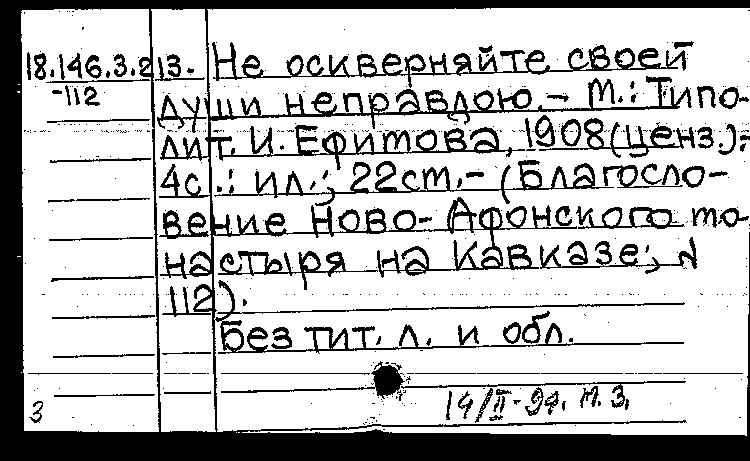 18.146.3.213. Не оскверняйте своей
-112 души неправдою. – М.: Типо-
лит. И. Ефимова, 1908 (ценз.).-
4с.: ил.; 22см.- (Благосло-
вение Ново-Афонского мо-
настыря на Кавказе;
112).
Без тит. л. и обл.
14/II-94. М. З.
3